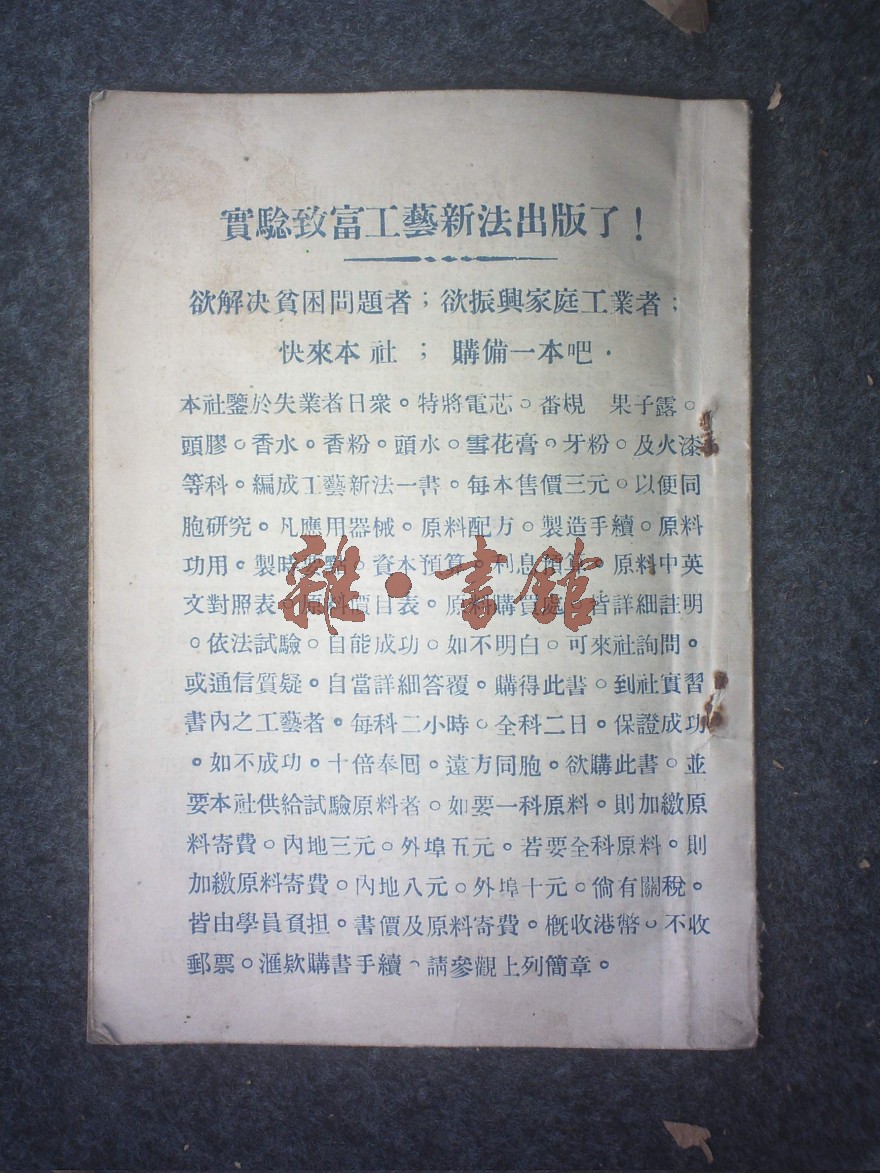 實騐致富工藝新法出版了！
欲解決貧困問題者；欲振興家庭工業者；
快來本社；購備一本吧．
本社鑒於失業者日衆。特將電芯。番梘　果子露。
頭膠。香水。香粉。頭水。雪花膏。牙粉。及火漆
等科。編成工藝新法一書。每本售價三元。以便同
胞研究。凡應用器械。原料配方。製造手續。原料
功用。製時要點。資本預算。利息預算。原料中英
文對照表。原料價目表。原料購買處。皆詳細註明
。依法試驗。自能成功。如不明白。可來社詢問。
或通信質疑。自當詳細答覆。購得此書。到社實習
書內之工藝者。每科二小時。全科二日。保證成功
。如不成功。十倍奉囘。遠方同胞。欲購此書。並
要本社供給試驗原料者。如要一科原料。則加繳原
料寄費。內地三元。外埠五元。若要全科原料。則
加繳原料寄費。內地八元。外埠十元。倘有關稅。
皆由學員負担。書價及原料寄費。概收港幣。不收
郵票。滙欵購書手續。請參觀上列簡章。
雜·書館